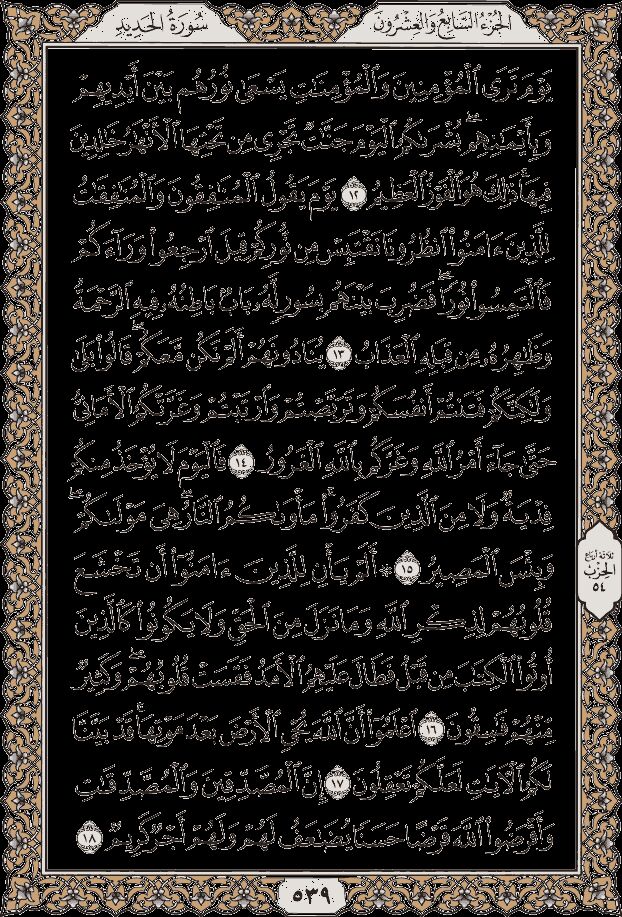 الجزء السابع والعشرون
سورة الحديد
يَوْمَ تَرَى ٱلْمُؤْمِنِينَ وَٱلْمُؤْمِنَٰتِ يَسْعَىٰ نُورُهُم بَيْنَ أَيْدِيهِمْ
وَبِأَيْمَٰنِهِم بُشْرَىٰكُمُ ٱلْيَوْمَ جَنَّٰتٌ تَجْرِى مِن تَحْتِهَا ٱلْأَنْهَٰرُ خَٰلِدِينَ
فِيهَا ۚ ذَٰلِكَ هُوَ ٱلْفَوْزُ ٱلْعَظِيمُ ١٢ يَوْمَ يَقُولُ ٱلْمُنَٰفِقُونَ وَٱلْمُنَٰفِقَٰتُ
لِلَّذِينَ ءَامَنُوا۟ ٱنظُرُونَا نَقْتَبِسْ مِن نُّورِكُمْ قِيلَ ٱرْجِعُوا۟ وَرَآءَكُمْ
فَٱلْتَمِسُوا۟ نُورًا ۖ فَضُرِبَ بَيْنَهُم بِسُورٍ لَّهُۥ بَابٌۢ بَاطِنُهُۥ فِيهِ ٱلرَّحْمَةُ
وَظَٰهِرُهُۥ مِن قِبَلِهِ ٱلْعَذَابُ ١٣ يُنَادُونَهُمْ أَلَمْ نَكُن مَّعَكُمْ ۖ قَالُوا۟ بَلَىٰ
وَلَٰكِنَّكُمْ فَتَنتُمْ أَنفُسَكُمْ وَتَرَبَّصْتُمْ وَٱرْتَبْتُمْ وَغَرَّتْكُمُ ٱلْأَمَانِىُّ
حَتَّىٰ جَآءَ أَمْرُ ٱللَّهِ وَغَرَّكُم بِٱللَّهِ ٱلْغَرُورُ ١٤ فَٱلْيَوْمَ لَا يُؤْخَذُ مِنكُمْ
فِدْيَةٌ وَلَا مِنَ ٱلَّذِينَ كَفَرُوا۟ ۚ مَأْوَىٰكُمُ ٱلنَّارُ ۖ هِىَ مَوْلَىٰكُمْ ۖ
وَبِئْسَ ٱلْمَصِيرُ ١٥ ۞ أَلَمْ يَأْنِ لِلَّذِينَ ءَامَنُوٓا۟ أَن تَخْشَعَ
قُلُوبُهُمْ لِذِكْرِ ٱللَّهِ وَمَا نَزَلَ مِنَ ٱلْحَقِّ وَلَا يَكُونُوا۟ كَٱلَّذِينَ
أُوتُوا۟ ٱلْكِتَٰبَ مِن قَبْلُ فَطَالَ عَلَيْهِمُ ٱلْأَمَدُ فَقَسَتْ قُلُوبُهُمْ ۖ وَكَثِيرٌ
مِّنْهُمْ فَٰسِقُونَ ١٦ ٱعْلَمُوٓا۟ أَنَّ ٱللَّهَ يُحْىِ ٱلْأَرْضَ بَعْدَ مَوْتِهَا ۚ قَدْ بَيَّنَّا
لَكُمُ ٱلْءَايَٰتِ لَعَلَّكُمْ تَعْقِلُونَ ١٧ إِنَّ ٱلْمُصَّدِّقِينَ وَٱلْمُصَّدِّقَٰتِ
وَأَقْرَضُوا۟ ٱللَّهَ قَرْضًا حَسَنًا يُضَٰعَفُ لَهُمْ وَلَهُمْ أَجْرٌ كَرِيمٌ ١٨
ثلاثة أرباع
الحزب
٥٤
٥٣٩